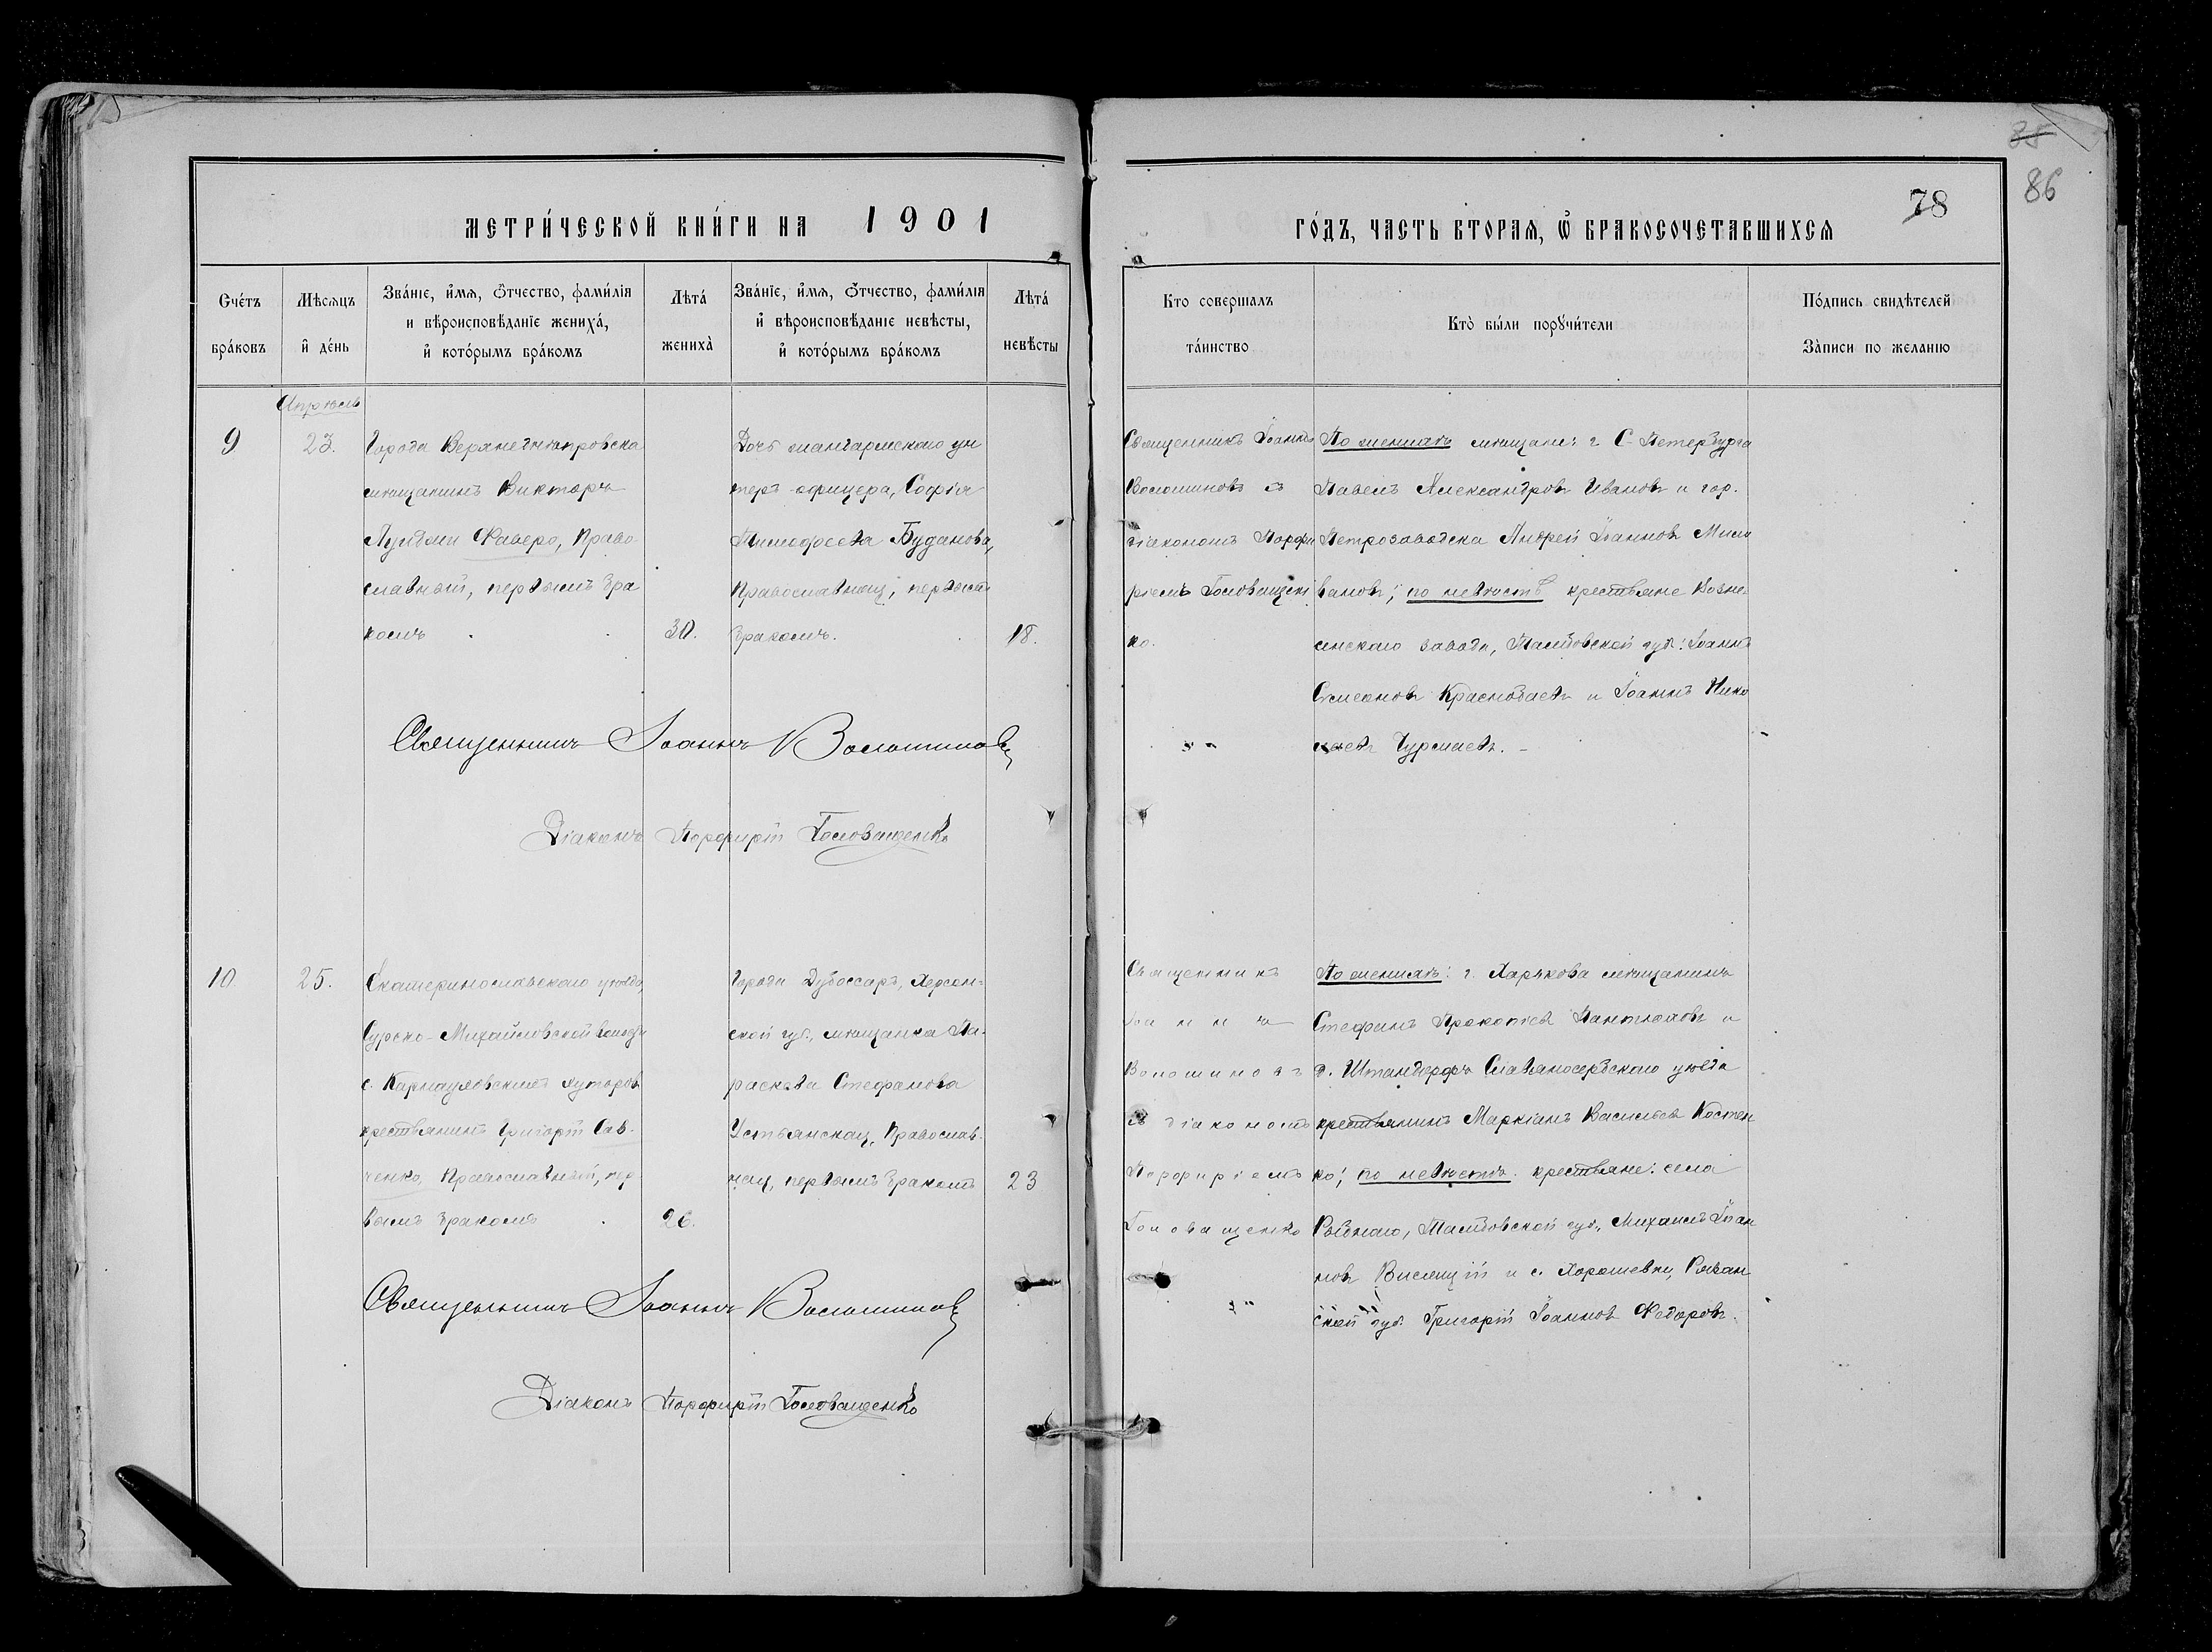 85
86
78
МЕТРИ́ЧЕСКОЙ КНИ́ГИ НА 1901
ГО́ДЪ, ЧАСТЬ ВТОРАѦ, Ѡ҆ БРАКОСОЧЕТАВШИХСѦ
Счéтъ бра́ковъ
Мѣсѧцъ и҆ де́нь
Зва́нїе, и҆́мѧ, ѻ҆́тчество, фами́лїѧ
и вѣроисповѣ́данїе жениха́,
и҆ кото́рымъ бра́комъ
Лѣта́ жениха̀
Зва́нїе, и҆́мѧ, ѻ҆́тчество, фами́лїѧ
и҆ вѣроисповѣ́данїе невѣ́сты,
и҆ кото́рымъ бра́комъ
Лѣта́ невѣ́сты
Кто соверша́лъ та́инство
Кто̀ бы́ли порꙋчи́тели
По́дпись свидѣ́телей
За̀писи по жела́нїю
Апрѣль
9
23.
Города Верхнеднѣпровска
мѣщанинъ Викторъ
Луиджи Фаверо, Право-
славный, первымъ бра
комъ
30.
Дочь жандармскаго ун
теръ-офицера, Софія
Тимофеева Буданова,
Православная, первымъ
бракомъ.
18.
Священникъ Іоаннъ
Волошиновъ съ
діакономъ Порфи
ріемъ Головащен
ко.
По женихѣ мѣщане: г. С-Петербурга
Павелъ Александровъ Ивановъ и гор.
Петрозаводска Андрей Іоанновъ Мили
вановъ; по невѣстѣ крестьяне Возне-
сенскаго завода, Тамбовской губ.: Іоаннъ
Симеоновъ Краснобаевъ и Іоаннъ Нико
лаевъ Гурмаевъ.
Священникъ Іоаннъ Волошиновъ
Діаконъ Порфирій Головащенко
10
25.
Екатеринославскаго уѣзда,
Сурско-Михайловской волости
с. Карнауховскихъ хуторовъ
крестьянинъ Григорій Сав-
ченко, Православный, пер
вымъ бракомъ
26.
Города Дубоссаръ, Херсон-
ской губ., мѣщанка Па-
раскева Стефанова
Устьянская, Православ-
ная, первымъ бракомъ
23
Священникъ
Іоаннъ
Волошиновъ
съ діакономъ
Порфиріемъ
Головащенко
По женихѣ: г. Харькова мѣщанинъ
Стефанъ Прокопіевъ Пантюховъ и
д. Штандорфъ Славяносербскаго уѣзда
крестьянинъ Маркіанъ Васильевъ Костен
ко; по невѣстѣ крестьяне: села
Рыбнаго, Тамбовской губ., Михаилъ Іоан
новъ Висящій и с. Хорошевки, Рязан
ской губ. Григорій Іоанновъ Федоровъ.
Священникъ Іоаннъ Волошиновъ
Діаконъ Порфирій Головащенко